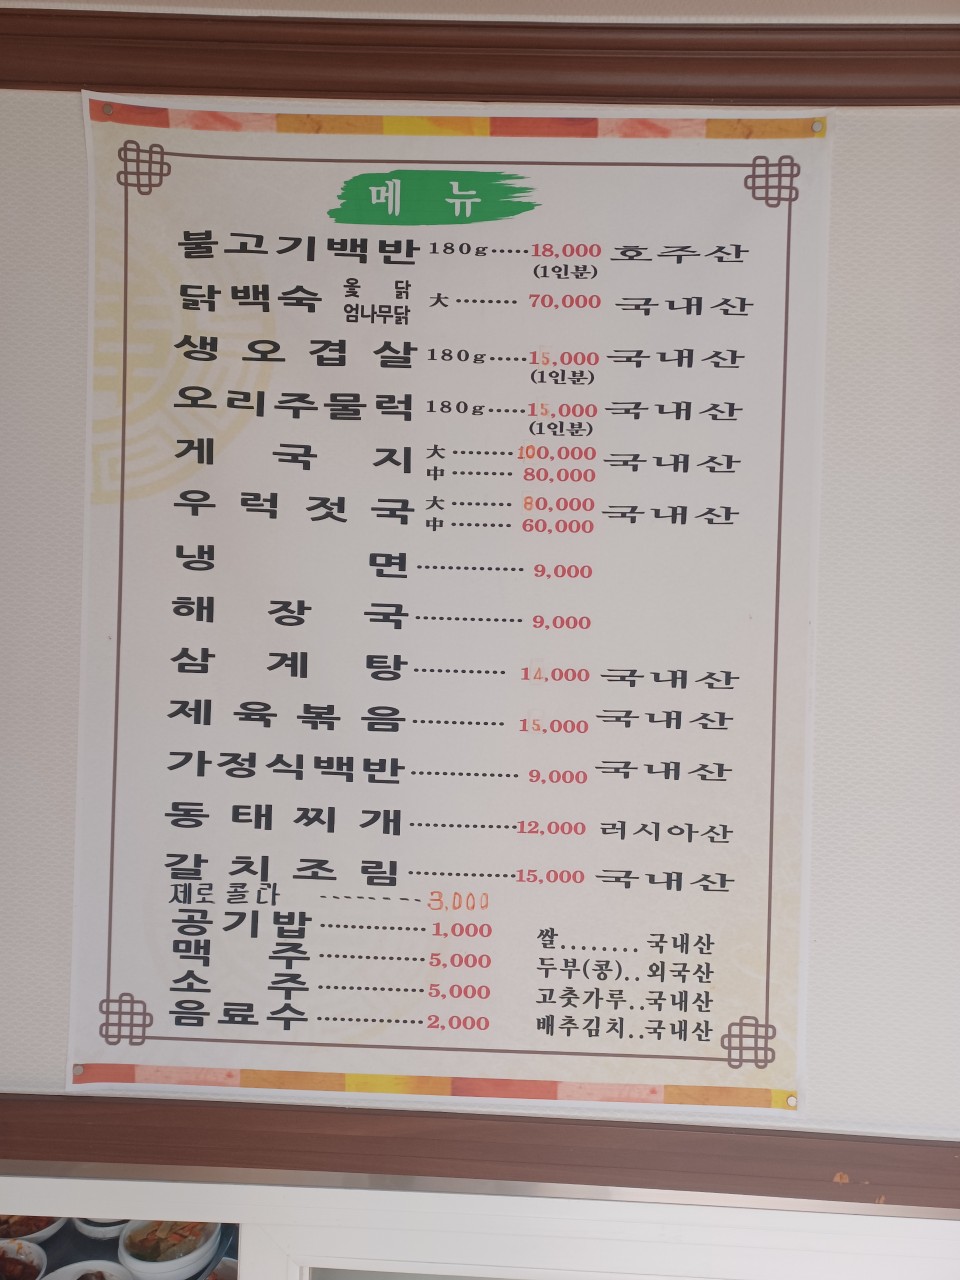 메뉴
불고기백반 180g.....18,000 호주산
(1인분)
닭백숙 옻닭 엄나무닭 大 ........ 70,000 국내산
생오겹살 180g.....15,000 국내산
(1인분)
오리주물럭 180g.....15,000 국내산
(1인분)
게국지 大 ........ 100,000 국내산
中 ........ 80,000
우럭젓국 大 ........ 80,000 국내산
中 ........ 60,000
냉면 .............. 9,000
해장국 .............. 9,000
삼계탕 ............ 14,000 국내산
제육볶음 ............ 15,000 국내산
가정식백반 .............. 9,000 국내산
동태찌개 ..............12,000 러시아산
갈치조림 ..............15,000 국내산
제로콜라 -------- 3,000
공기밥 .............. 1,000
맥주 .............. 5,000
소주 .............. 5,000
음료수 .............. 2,000
쌀........ 국내산
두부(콩).. 외국산
고춧가루..국내산
배추김치..국내산